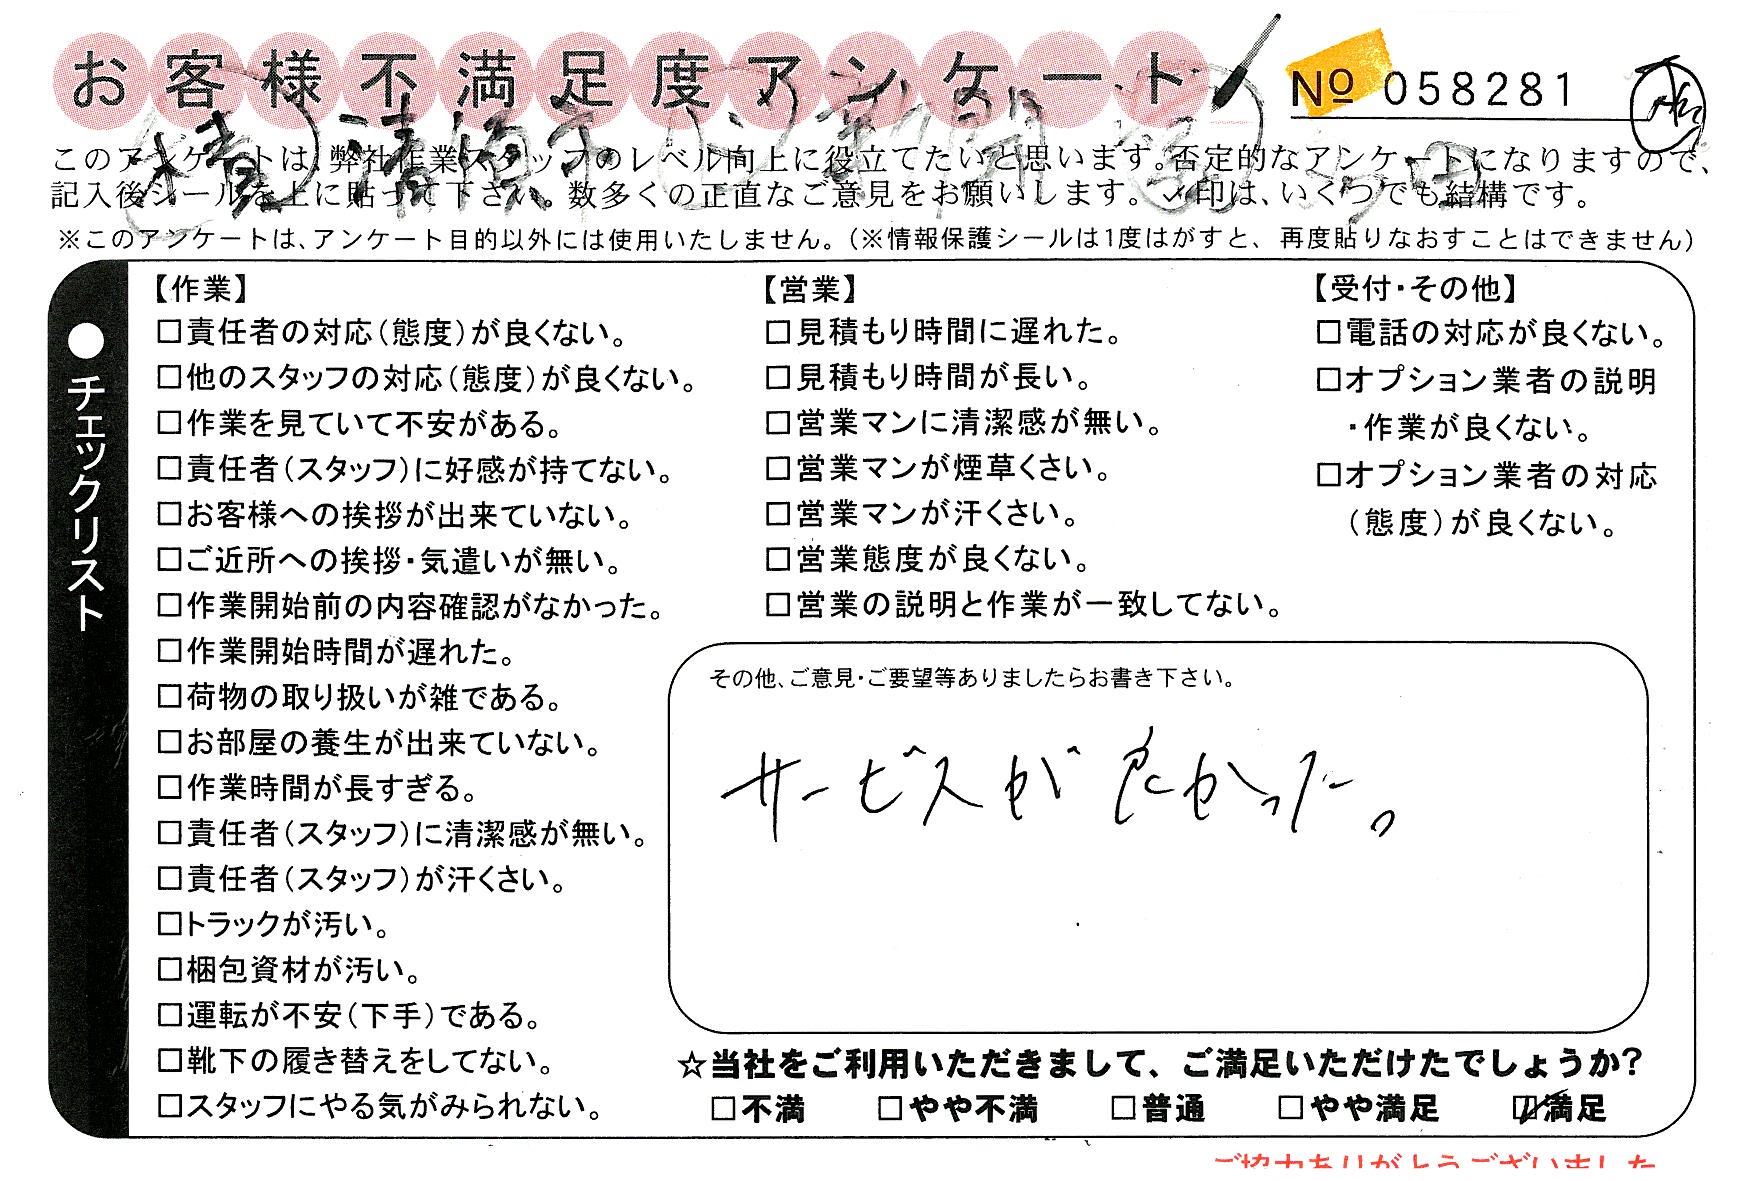 お客様不満足度アンケート
No 058281
このアンケートは、弊社作業スタッフのレベル向上に役立てたいと思います。否定的なアンケートになりますので、
記入後シールを上に貼って下さい。数多くの正直なご意見をお願いします。✓印は、いくつでも結構です。
※このアンケートは、アンケート目的以外には使用いたしません。(※情報保護シールは1度はがすと、再度貼りなおすことはできません)
●チェックリスト
【作業】
□責任者の対応(態度)が良くない。
□他のスタッフの対応(態度)が良くない。
□作業を見ていて不安がある。
□責任者(スタッフ)に好感が持てない。
□お客様への挨拶が出来ていない。
□ご近所への挨拶・気遣いが無い。
□作業開始前の内容確認がなかった。
□作業開始時間が遅れた。
□荷物の取り扱いが雑である。
□お部屋の養生が出来ていない。
□作業時間が長すぎる。
□責任者(スタッフ)に清潔感が無い。
□責任者(スタッフ)が汗くさい。
□トラックが汚い。
□梱包資材が汚い。
□運転が不安(下手)である。
□靴下の履き替えをしてない。
□スタッフにやる気がみられない。
【営業】
□見積もり時間に遅れた。
□見積もり時間が長い。
□営業マンに清潔感が無い。
□営業マンが煙草くさい。
□営業マンが汗くさい。
□営業態度が良くない。
□営業の説明と作業が一致してない。
【受付・その他】
□電話の対応が良くない。
□オプション業者の説明
・作業が良くない。
□オプション業者の対応
(態度)が良くない。
その他、ご意見・ご要望等ありましたらお書き下さい。
サービスが良かった。
☆当社をご利用いただきまして、ご満足いただけたでしょうか?
□不満 □やや不満 □普通 □やや満足 ☑満足
ご協力ありがとうございました